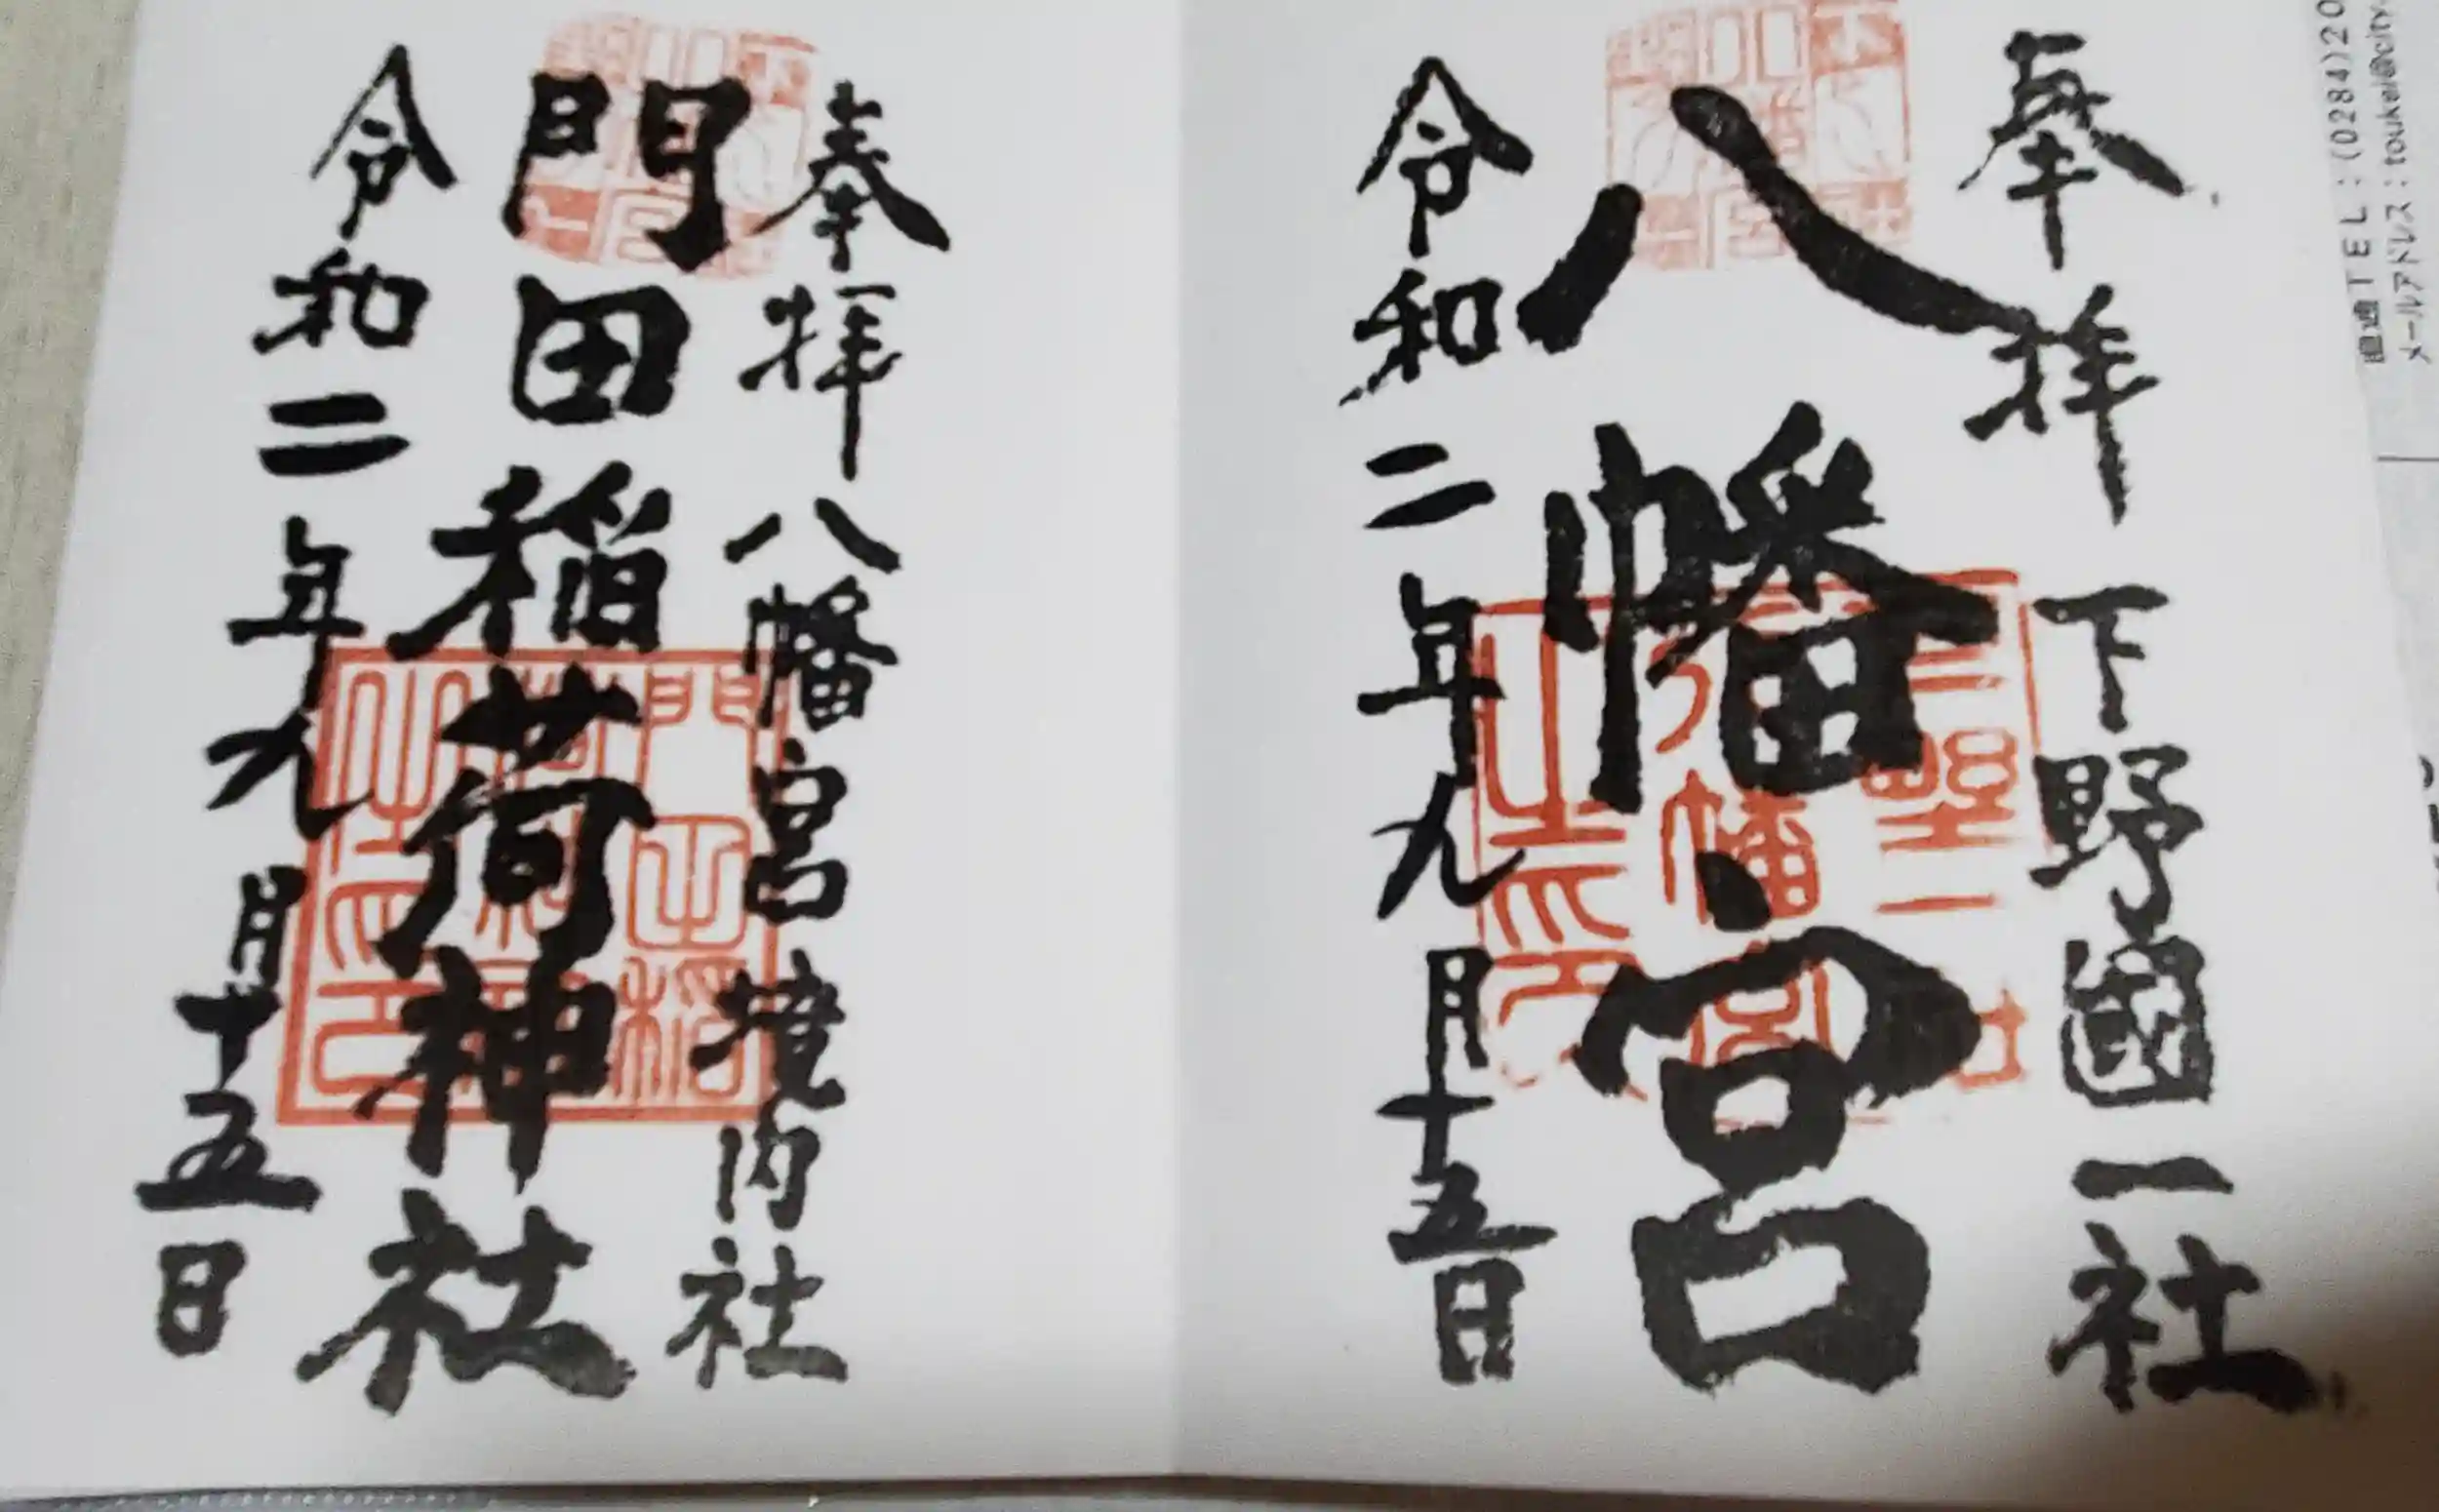 奉拝
下野國一社
八幡宮
令和二年九月十五日
奉拝
八幡宮境内社
門田稲荷神社
令和二年九月十五日
直通TEL:(0284)20
メールアドレス:toukei@city